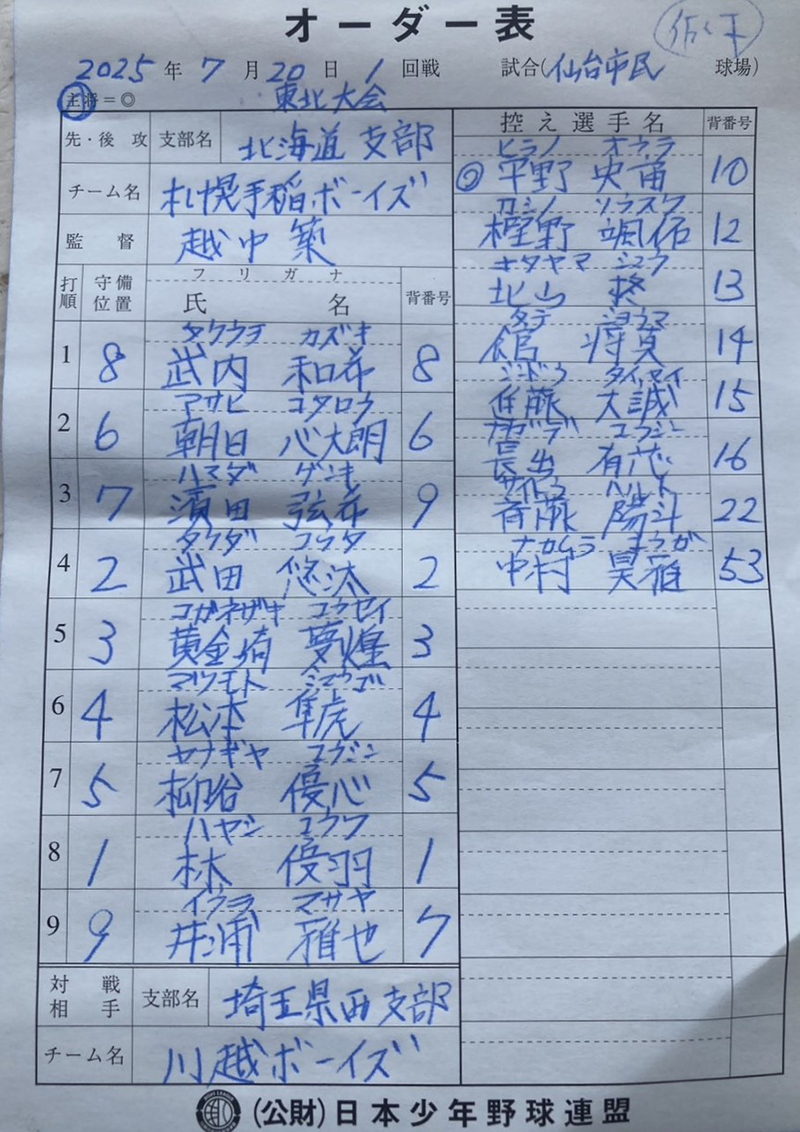 オーダー表
2025 年 7 月 20 日 1 回戦 試合(仙台市民 球場)
主将=◎ 東北大会
先・後 攻 支部名 北海道支部
チーム名 札幌手稲ボーイズ
監督 越中 築
打順 守備位置 フリガナ 氏名 背番号
タケウチ カズキ
1 8 武内 和希 8
アサヒ コタロウ
2 6 朝日 心太朗 6
ハマダ ゲンキ
3 7 濱田 弦希 9
タケダ ユウタ
4 2 武田 悠汰 2
コガネザキ ユウセイ
5 3 黄金崎 夢煌 3
マツモト シュウゴ
6 4 松本 隼虎 4
ヤナギヤ ユウシン
7 5 柳谷 優心 5
ハヤシ ユウワ
8 1 林 優羽 1
イウラ マサヤ
9 9 井浦 雅也 7
対戦相手 支部名 埼玉県西支部
チーム名 川越ボーイズ
控え選手名 背番号
ヒラノ オウラ
◎ 平野 央 10
カシノ ソウスケ
樫野 颯佑 12
キタヤマ シュウ
北山 柊 13
タテ ショウマ
舘 将真 14
タイセイ
大誠 15
ナガデ ユウシン
長出 有芯 16
サイトウ ハルト
斉藤 陽斗 22
ナカムラ コウガ
中村 昊雅 53
(公財)日本少年野球連盟